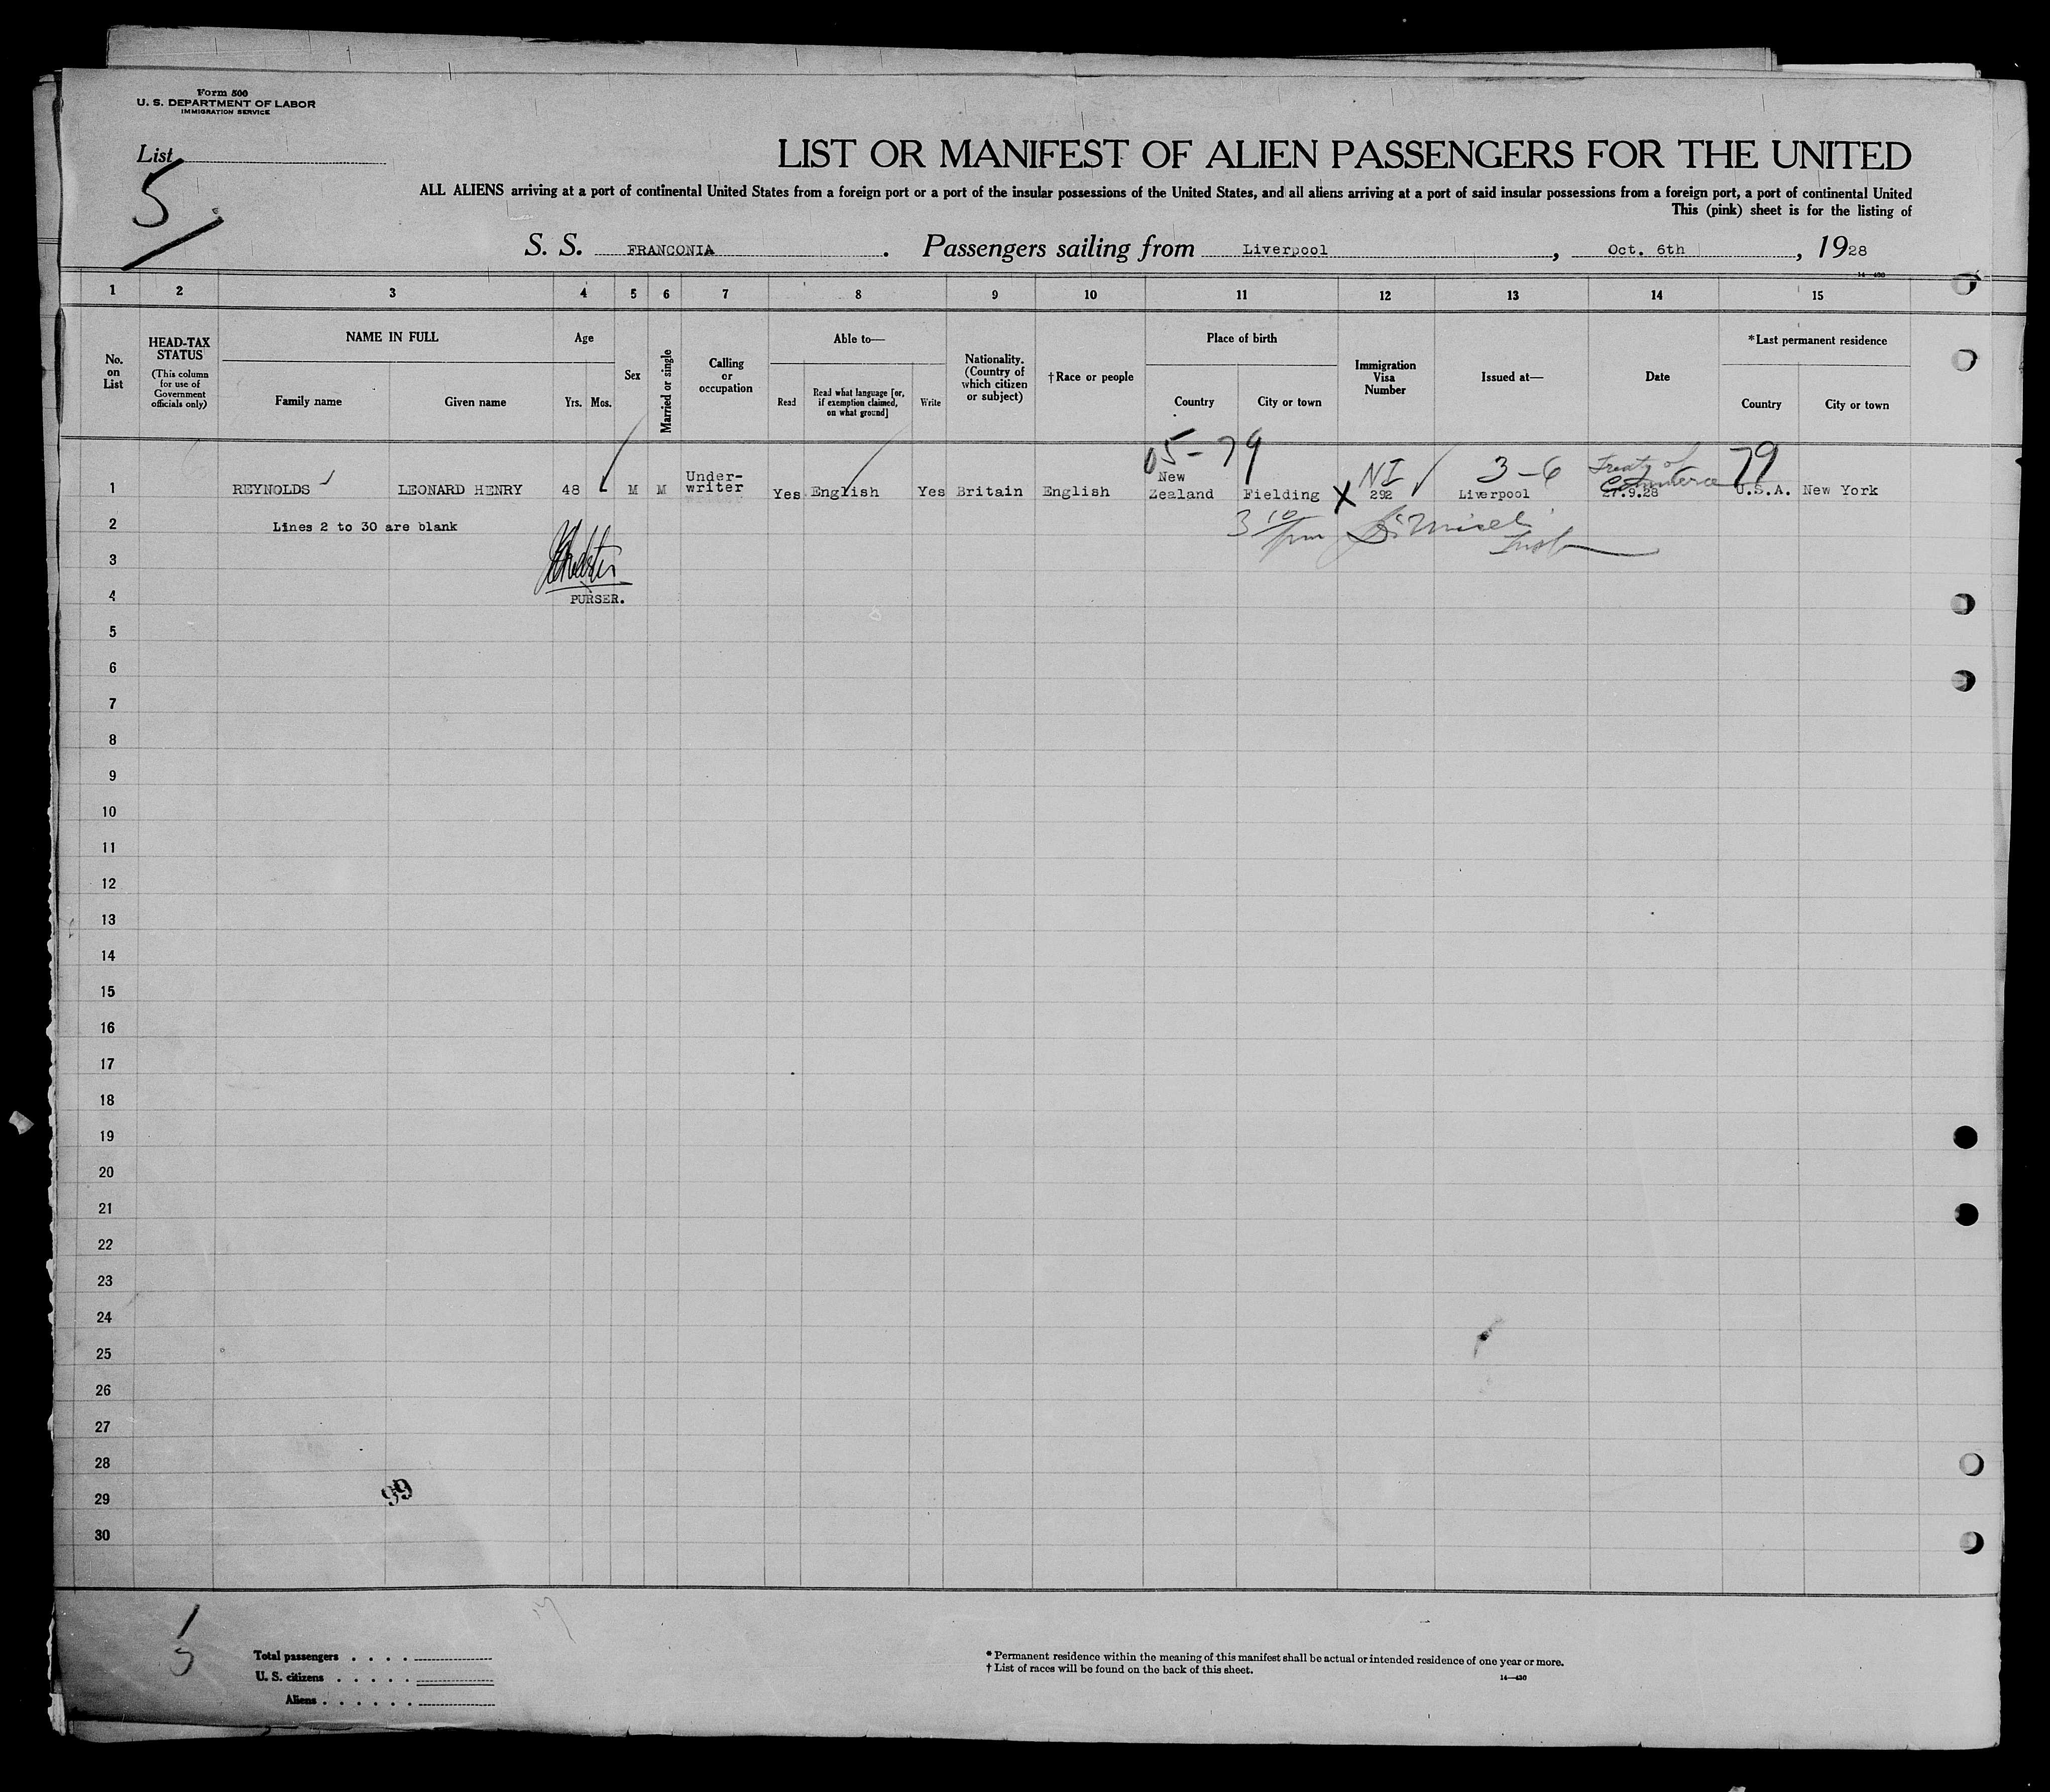 Form 500
U. S. DEPARTMENT OF LABOR
IMMIGRATION SERVICE
List
5
LIST OR MANIFEST OF ALIEN PASSENGERS FOR THE UNITED
ALL ALIENS arriving at a port of continental United States from a foreign port or a port of the insular possessions of the United States, and all aliens arriving at a port of said insular possessions from a foreign port, a port of continental United
This (pink) sheet is for the listing of
S. S. FRANCONIA. Passengers sailing from Liverpool, Oct. 6th, 1928
14—430
1 2 3 4 5 6 7 8 9 10 11 12 13 14 15
No. on List
HEAD-TAX STATUS
(This column for use of Government officials only)
NAME IN FULL
Family name
Given name
Age
Yrs.
Mos.
Sex
Married or single
Calling or occupation
Able to—
Read
Read what language [or, if exemption claimed, on what ground]
Write
Nationality. (Country of which citizen or subject)
†Race or people
Place of birth
Country
City or town
Immigration Visa Number
Issued at—
Date
*Last permanent residence
Country
City or town
05-79 NI 3-6 Treaty of Commerce 79
1 REYNOLDS LEONARD HENRY 48 M M Under-writer Yes English Yes Britain English New Zealand Fielding X 292 Liverpool 27.9.28 U.S.A. New York
2 Lines 2 to 30 are blank
3
4 PURSER.
5
6
7
8
9
10
11
12
13
14
15
16
17
18
19
20
21
22
23
24
25
26
27
28
29
99
30
1
5
Total passengers
U. S. citizens
Aliens
* Permanent residence within the meaning of this manifest shall be actual or intended residence of one year or more.
† List of races will be found on the back of this sheet.
14—430